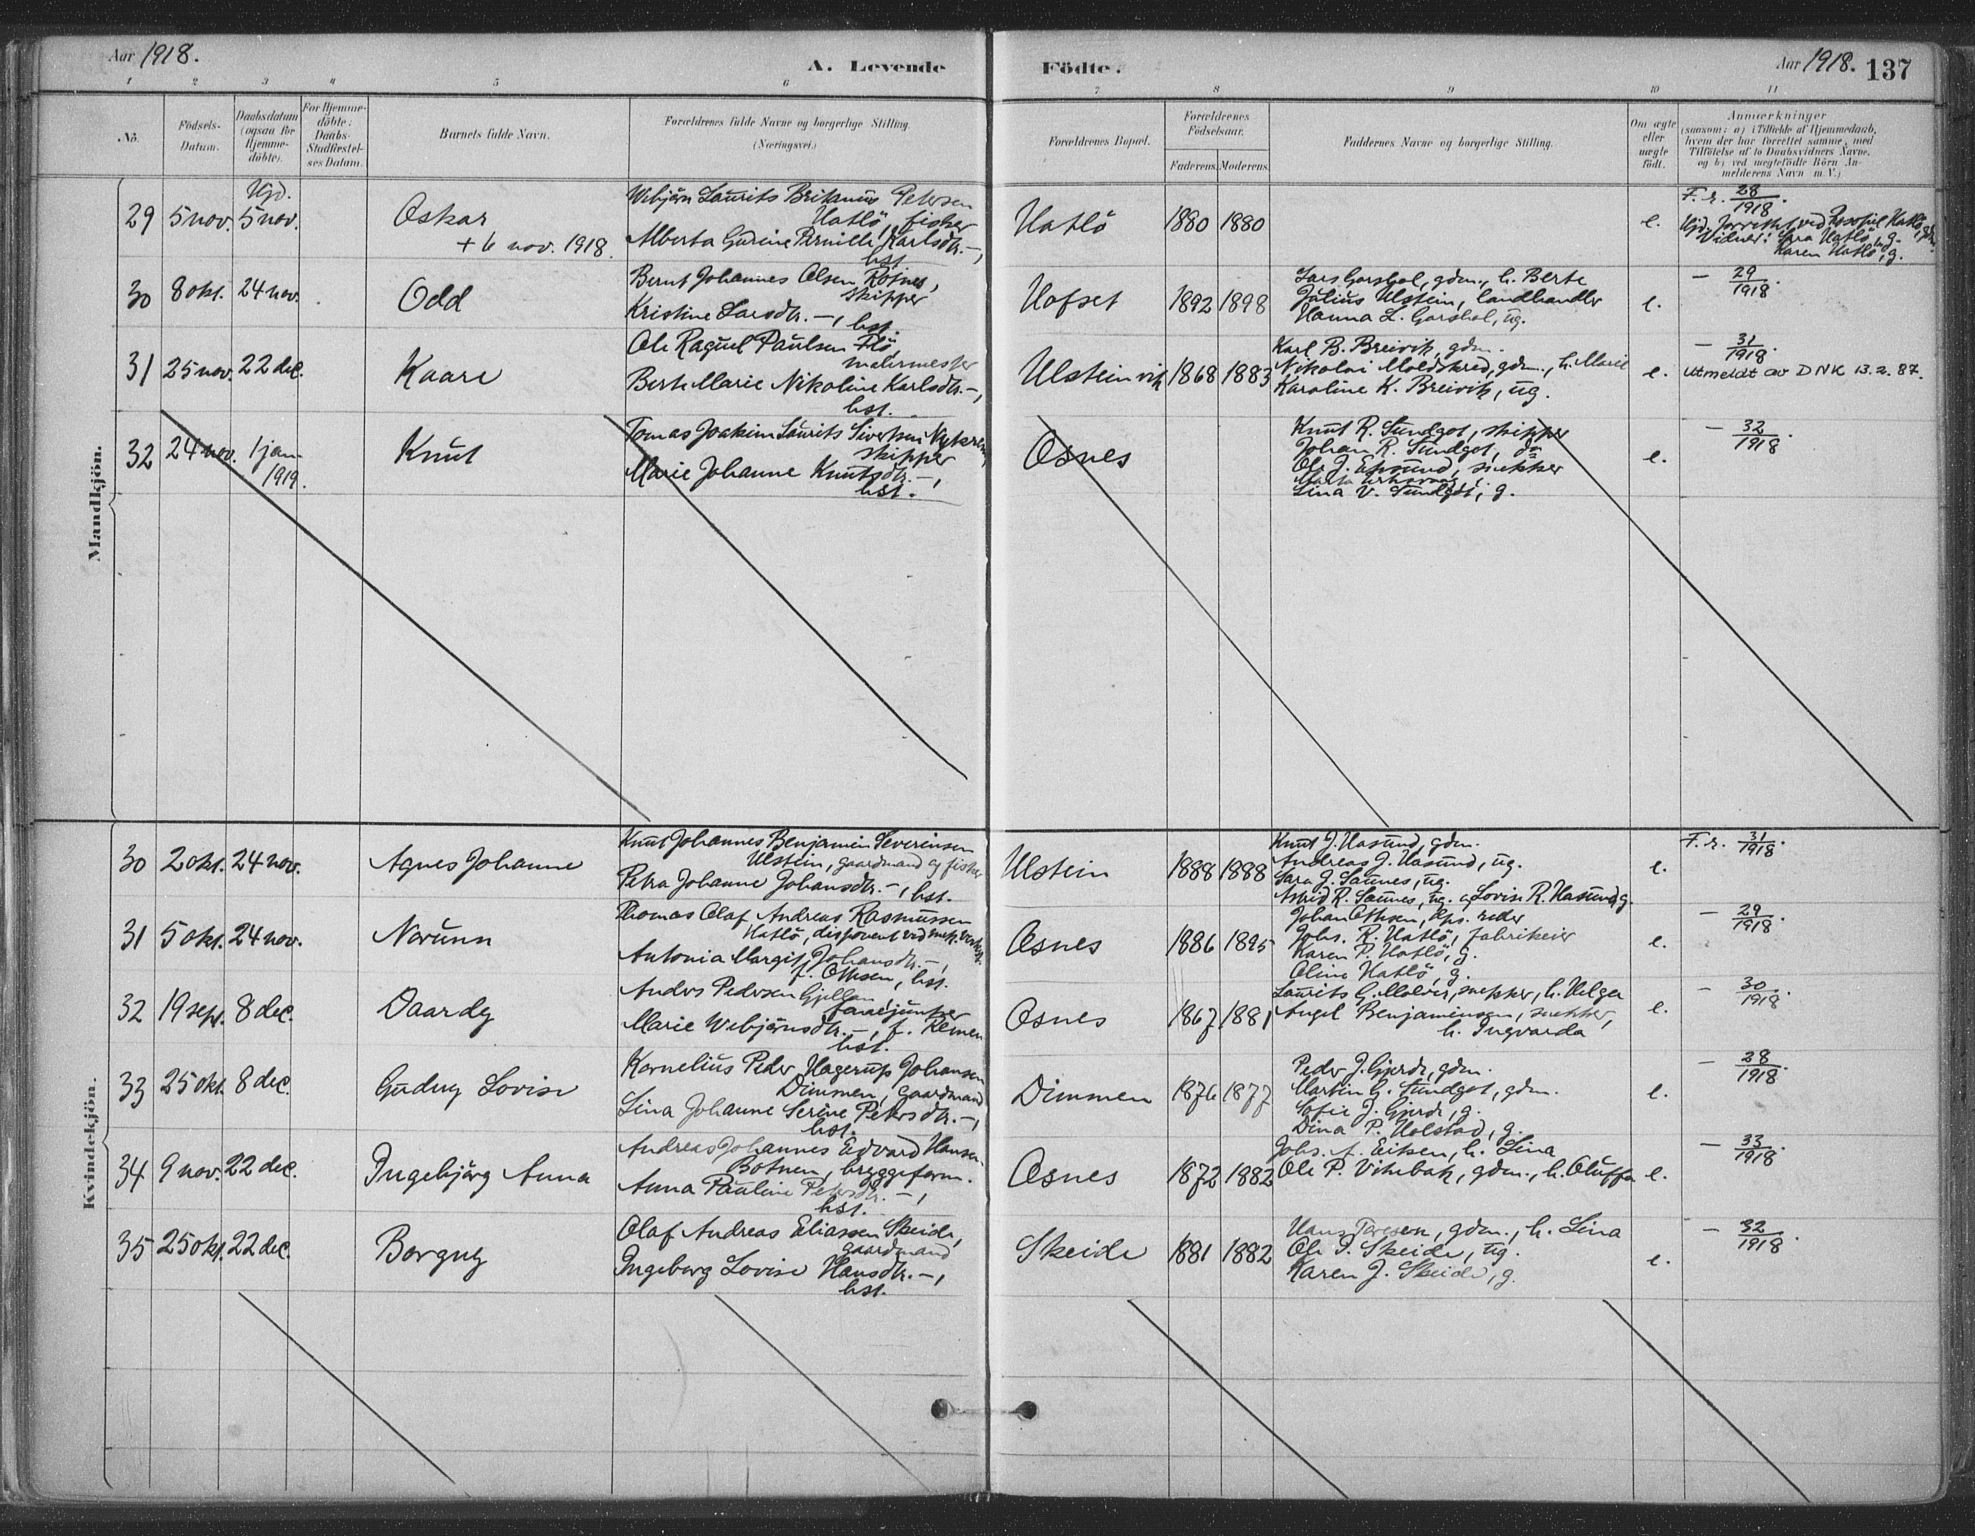 Aar 1918.
A. Levende Födte.
Aar 1918. 137
1 2 3 4 5 6 7 8 9 10 11
No.
Födsels-Datum.
Daabsdatum (ogsaa for Hjemme-döbte).
For Hjemme-döbte: Daabs-Stadfæstel-ses Datum.
Barnets fulde Navn.
Forældrenes fulde Navne og borgerlige Stilling.
(Næringsvei.)
Forældrenes Bopæl.
Forældrenes Födselsaar.
Faderens. Moderens.
Faddernes Navne og borgerlige Stilling.
Om ægte eller uægte födt.
Anmærkninger
(saasom: a) i Tilfælde af Hjemmedaab,
hvem der har forrettet samme, med
Tilföielse af to Daabsvidners Navne,
og b) ved uægtefödte Börn An-
melderens Navn m. V.)
Mandkjön.
Hjd.
29 5 nov. 5 nov. Oskar
+ 6 nov. 1918.
Webjörn Laurits Britanus Petersen
Hatlö, fisker
Alberta Gurine Pernille Karlsdtr. –,
hst.
Hatlö 1880 1880 e.
F. r. 28/1918.
Hjd. forrettet ved Hatlö,
Vidner: Sara Hatlö, g.
Karen Hatlö, g.
30 8 okt. 24 nov. Odd
Bernt Johannes Olsen Rötnes,
skipper
Kristine Larsdtr. –, hst.
Hofset 1892 1898
Lars Garshol, gdm., h. Berte
Julius Ulstein, landhandler
Hanna L. Garshol, ug.
e. – 29/1918.
31 25 nov. 22 dec. Kaare
Ole Raguel Paulsen Flö
malermester
Berte Marie Nikoline Karlsdtr. –,
hst.
Ulsteinvik 1868 1883
Karl B. Breivik, gdm.
Nikolai Moldskred, gdm., h. Marie
Karoline K. Breivik, ug.
e. – 31/1918.
Utmeldt av DNK 13.2.87.
32 24 nov. 1 jan. 1919. Knut
Tomas Joakim Laurits Sivertsen
skipper
Marie Johanne Knutsdtr. –,
hst.
Osnes
Knut R. Sundgot, skipper
Johan R. Sundgot, do
Ole J. snekker
Lina V. Sundgot, g.
e. – 32/1918.
Kvindekjön.
30 2 okt. 24 nov. Agnes Johanne
Knut Johannes Benjamin Severinsen
Ulstein, gaardmand og fisker
Petra Johanne Johansdtr. –, hst.
Ulstein 1888 1888
Knut J. Hasund, gdm.
Andreas J. Hasund, ug.
Sara J. Saunes, ug.
Astrid R. Saunes, ug. og Lovise R. Hasund, g.
e. F. r. 31/1918.
31 5 okt. 24 nov. Norunn
Thomas Olaf Andreas Rasmussen
Hatlö, disponent ved mek. verkst.
Antonia Margit Johansdtr. –,
f. Othsen, hst.
Osnes 1886 1895
Johan Othsen, dps. reder
Johs. R. Hatlö, fabrikeier
Karen P. Hatlö, g.
Oline Hatlö, g.
e. – 29/1918.
32 19 sept. 8 dec. Daardy
Anders Pedersen Gjellan,
Marie Webjörnsdtr. –, f. Remen
hst.
Osnes 1867 1881
Laurits G. snekker, h. Helga
Angel Benjaminsen, snekker,
h. Ingvarda
e. – 30/1918.
33 25 okt. 8 dec. Gudny Lovise
Kornelius Peder Hagerup Johansen
Dimmen, gaardmand
Lina Johanne Serine Petersdtr. –,
hst.
Dimmen 1876 1877
Peder J. Gjerde, gdm.
Martin G. Sundgot, gdm.
Sofie J. Gjerde, g.
Dina P. Holstad, g.
e. – 28/1918.
34 9 nov. 22 dec. Ingebjörg Anna
Andreas Johannes Edvard Hansen
Botnen, bryggeform.
Anna Pauline Petersdtr. –,
hst.
Osnes 1872 1882
Johs. A. Eiksen, h. Lina
Ole P. Vikebak, gdm., h. Oluffa
e. – 33/1918.
35 25 okt. 22 dec. Borgny
Olaf Andreas Eliassen Skeide,
gaardmand
Ingeborg Lovise Hansdtr. –,
hst.
Skeide 1881 1882
Hans gdm., h. Lina
Ole P. Skeide, ug.
Karen J. Skeide, g.
e. – 32/1918.